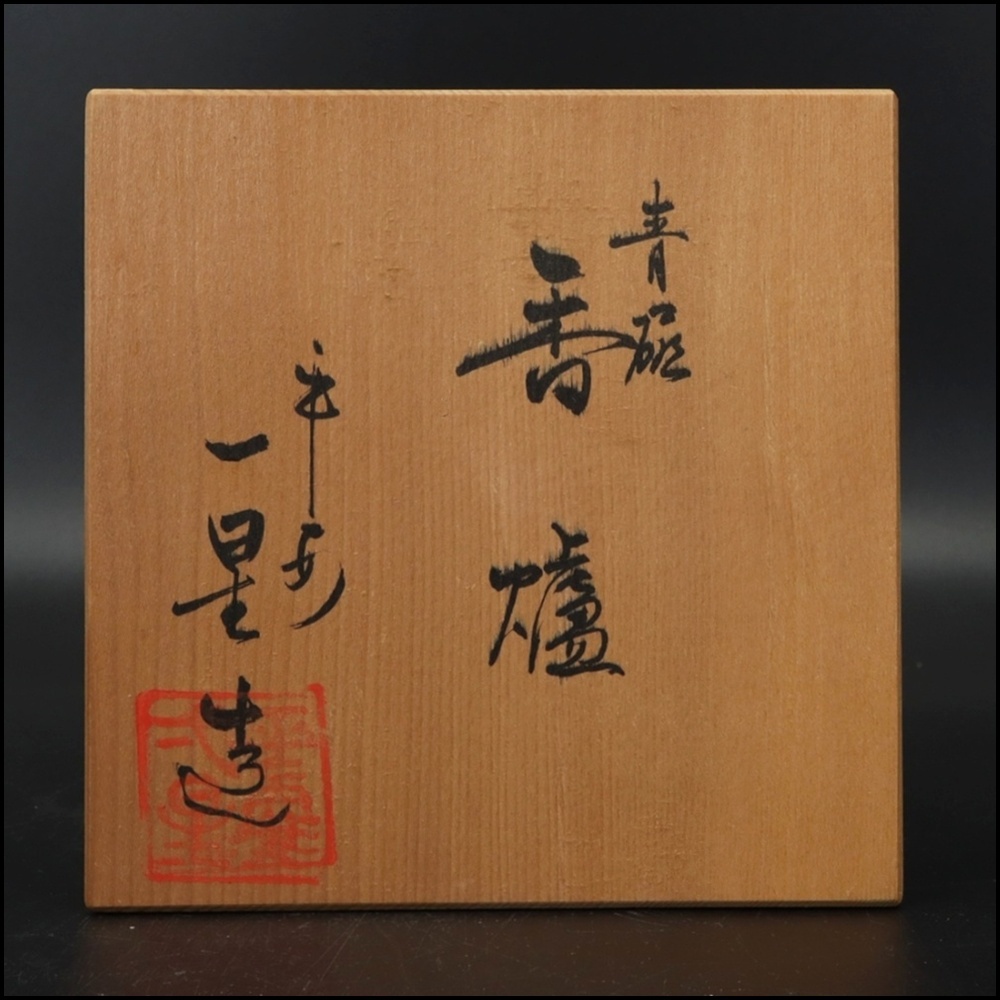 青磁
香爐
平安
一星造